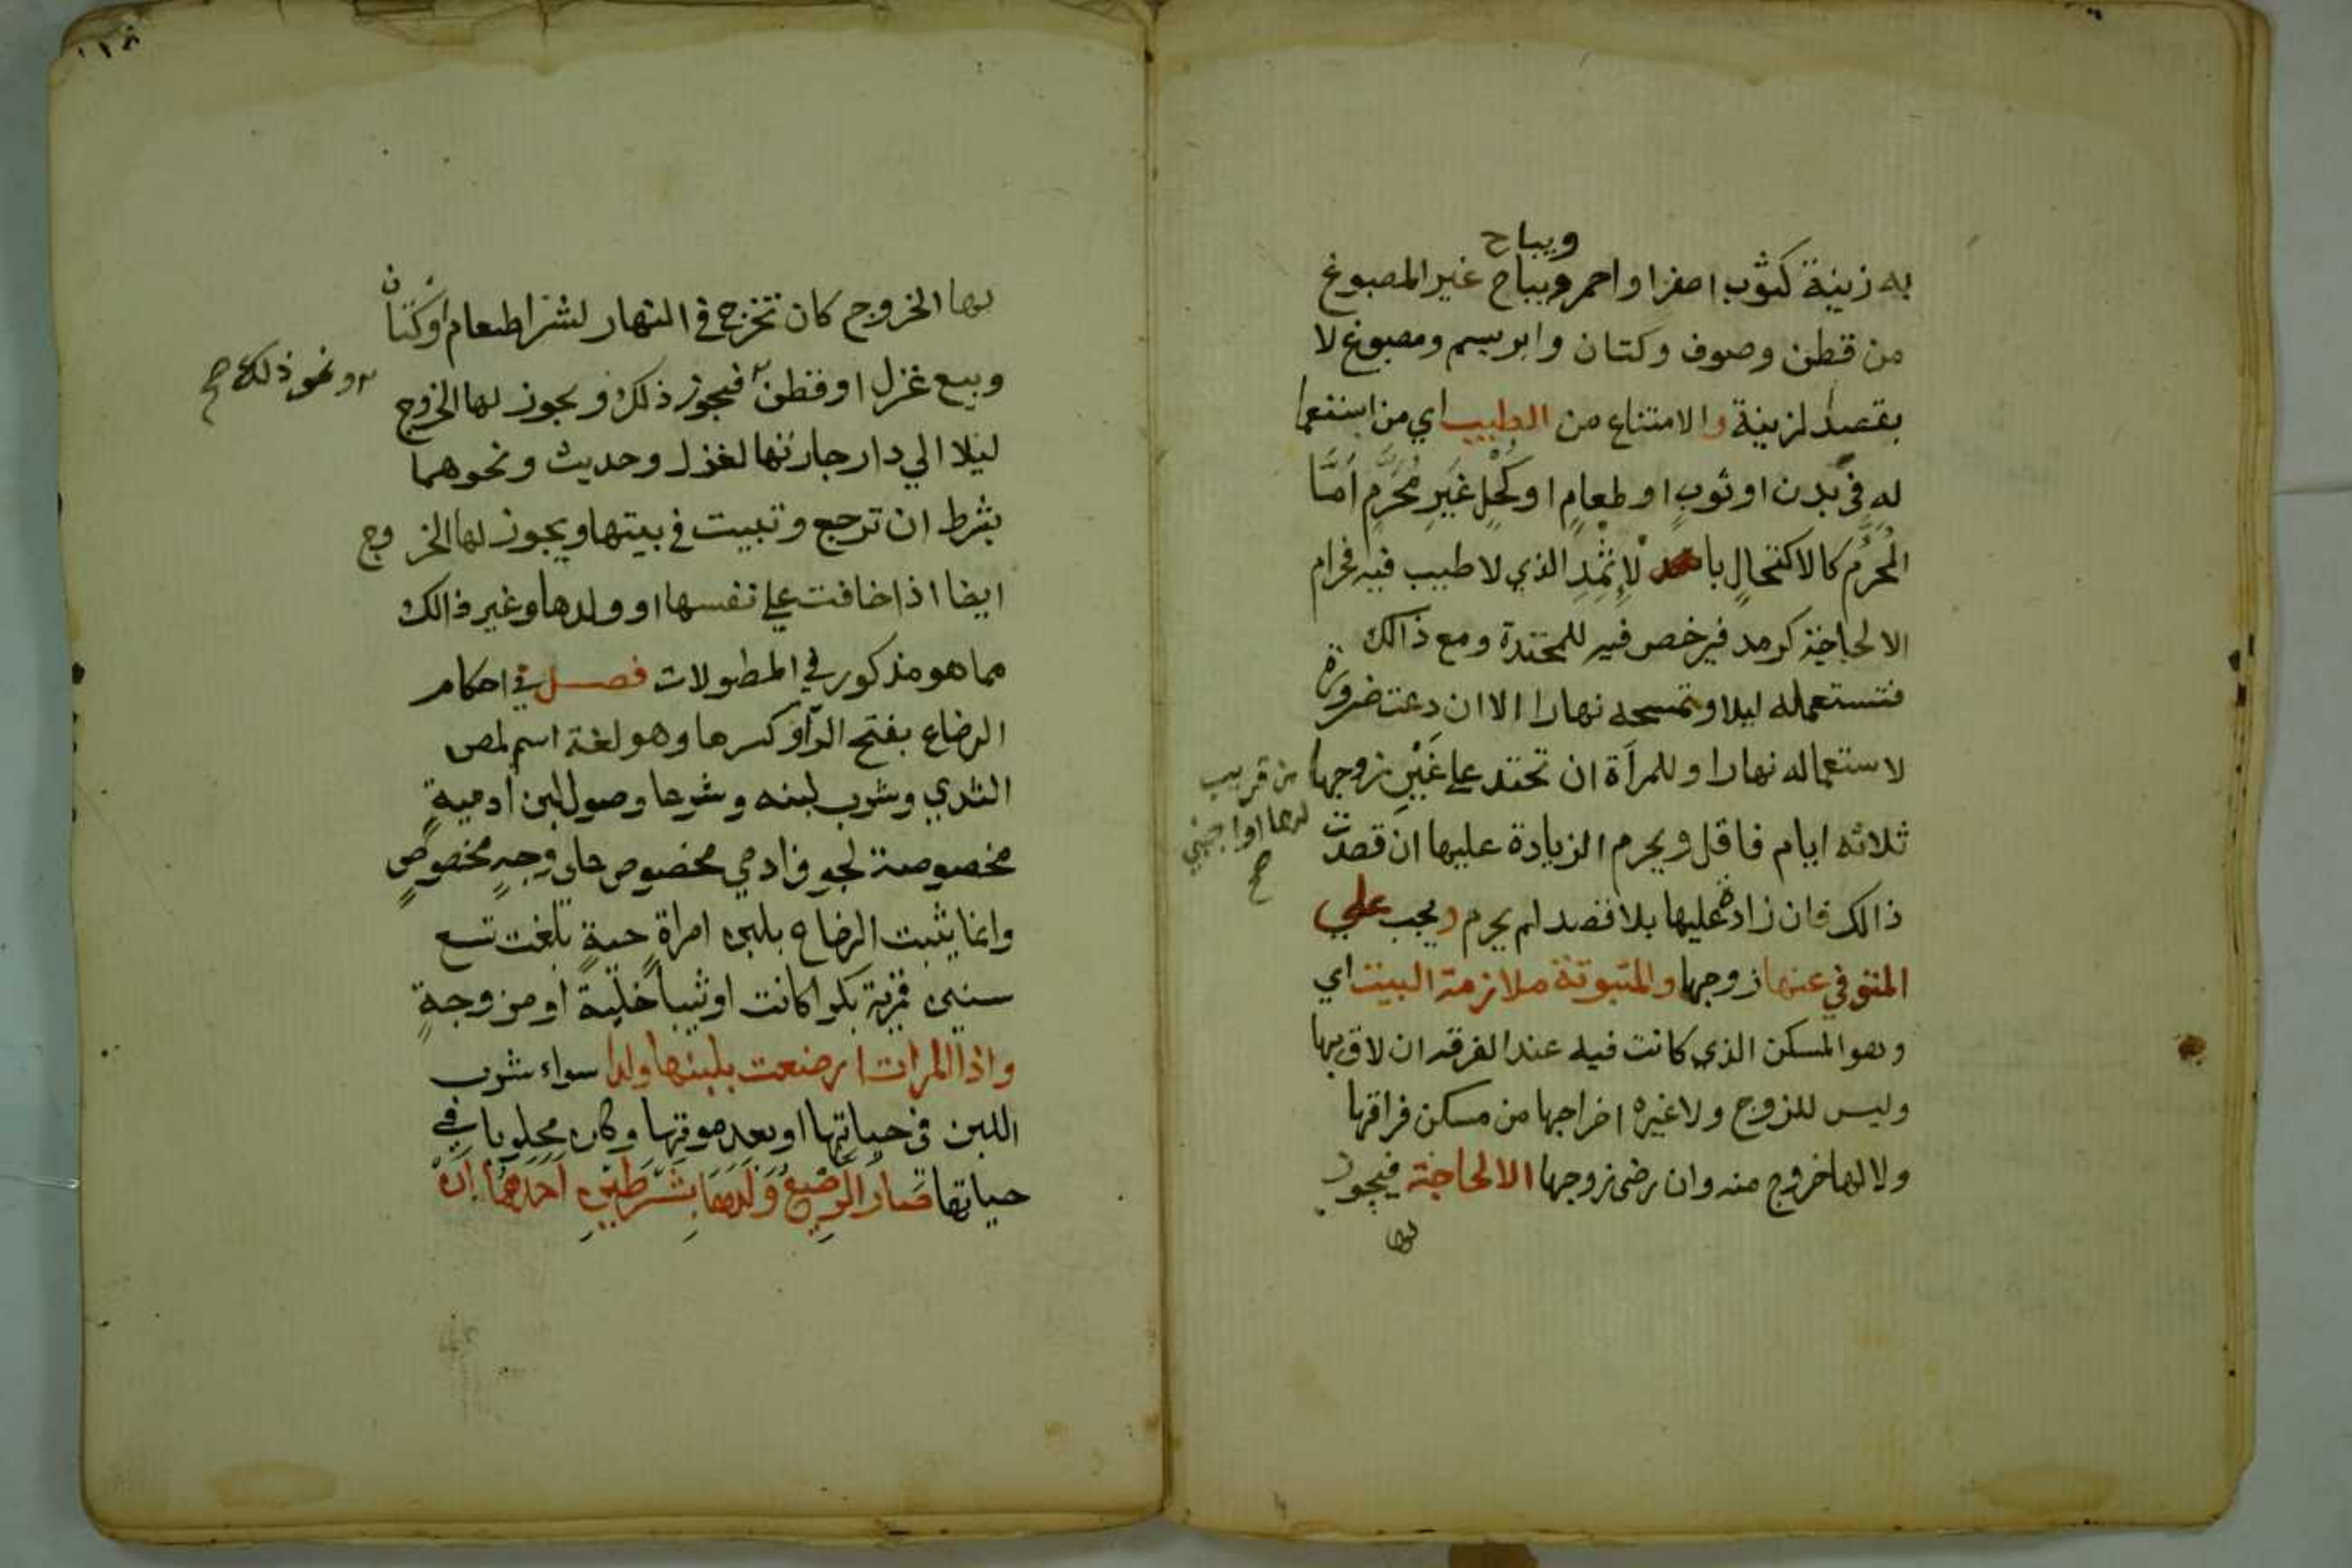 ويباح
به زينة كثوب اصفر او احمر ويباح غير المصبوغ
من قطن وصوف وكتان وابريسم ومصبوغ لا
بقصد لزينة والامتناع من الطيب اي من استعما
له في بدن او ثوب او طعام او كحل غير محرم اما
المحرم كالاكتحال با لاثمد الذي لا طيب فيه فحرام
الا لحاجة كرمد فيرخص فيه للمحتدة ومع ذالك
فتستعمله ليلا وتمسحه نهارا الا ان دعت ضرورة
لاستعماله نهارا وللمرأة ان تحتد على غير زوجها
من قريب
لها او اجنبي
صح
ثلاثه ايام فاقل ويحرم الزيادة عليها ان قصدت
ذالك فان زادة عليها بلا قصد لم يحرم ويجب على
المتوفي عنها زوجها والمتبوتة ملازمة البيت اي
وهو المسكن الذي كانت فيه عند الفرقه ان لاق بها
وليس للزوج ولا غيره اخراجها من مسكن فراقها
ولا لها خروج منه وان رضى زوجها الا لحاجة فيجوز
لها
١١٨
بها الخروج كان تخرج في النهار لشرا طعام او كتان
وبيع غزل او قطن فيجوز ذلك ويجوز لها الخروج
او نحو ذلك صح
ليلا الي دار جارتها لغزل وحديث ونحوهما
بشرط ان ترجع وتبيت في بيتها ويجوز لها الخروج
ايضا اذا خافت على نفسها او ولدها وغير ذالك
مما هو مذكور في المطولات فصل في احكام
الرضاع بفتح الرآ وكسرها وهو لغة اسم لمص
الثدي وشرب لبنه وشرعا وصول لبن ادمية
مخصوصة لجوف ادمي مخصوص على وجه مخصوص
وانما يثبت الرضاع بلبن امراة حية بلغت تسع
سنين قمرية بكرا كانت او ثيبا خلية او مزوجة
واذا المرات ارضعت بلبنها ولدا سواء شرب
اللبن في حياتها او بعد موتها وكان محلوبا في
حياتها صار الرضيع ولدها بشرطين احدهما ان